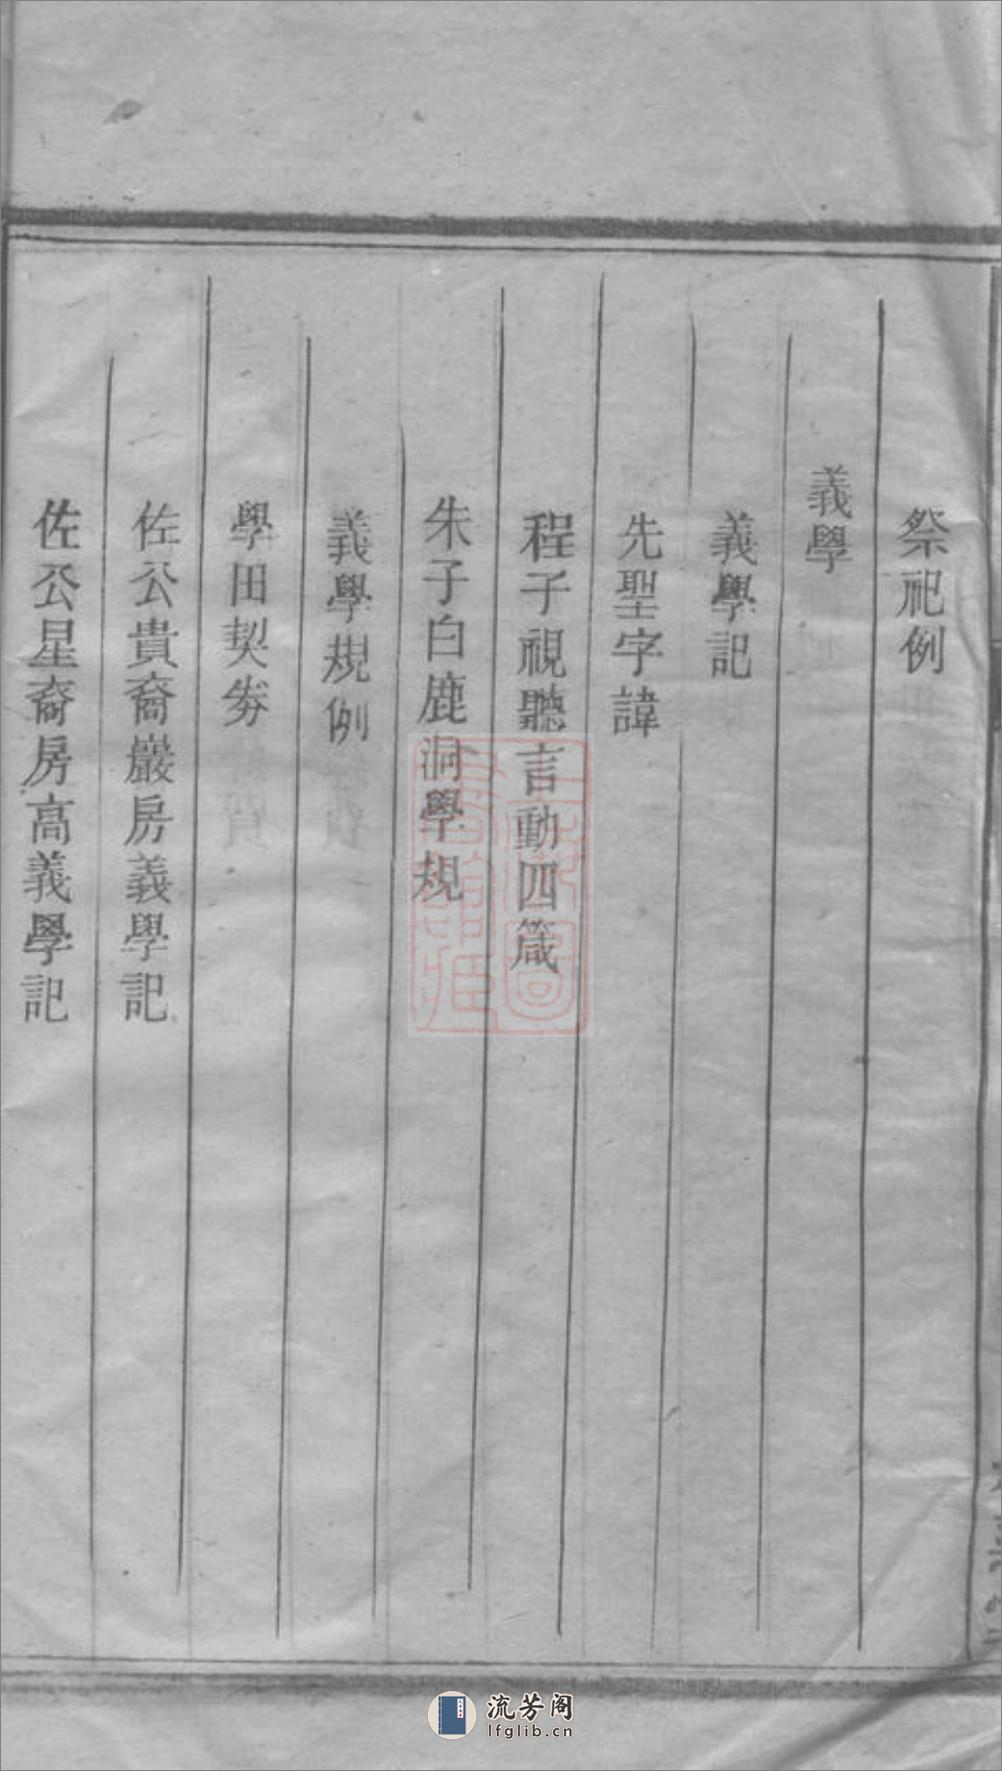 祭祀例
義學
義學記
先聖字諱
程子視聽言動四箴
朱子白鹿洞學規
義學規例
學田契券
佐公貴裔巖房義學記
佐公星裔房高義學記
上海圖書館藏
流芳阁
lfglib.cn